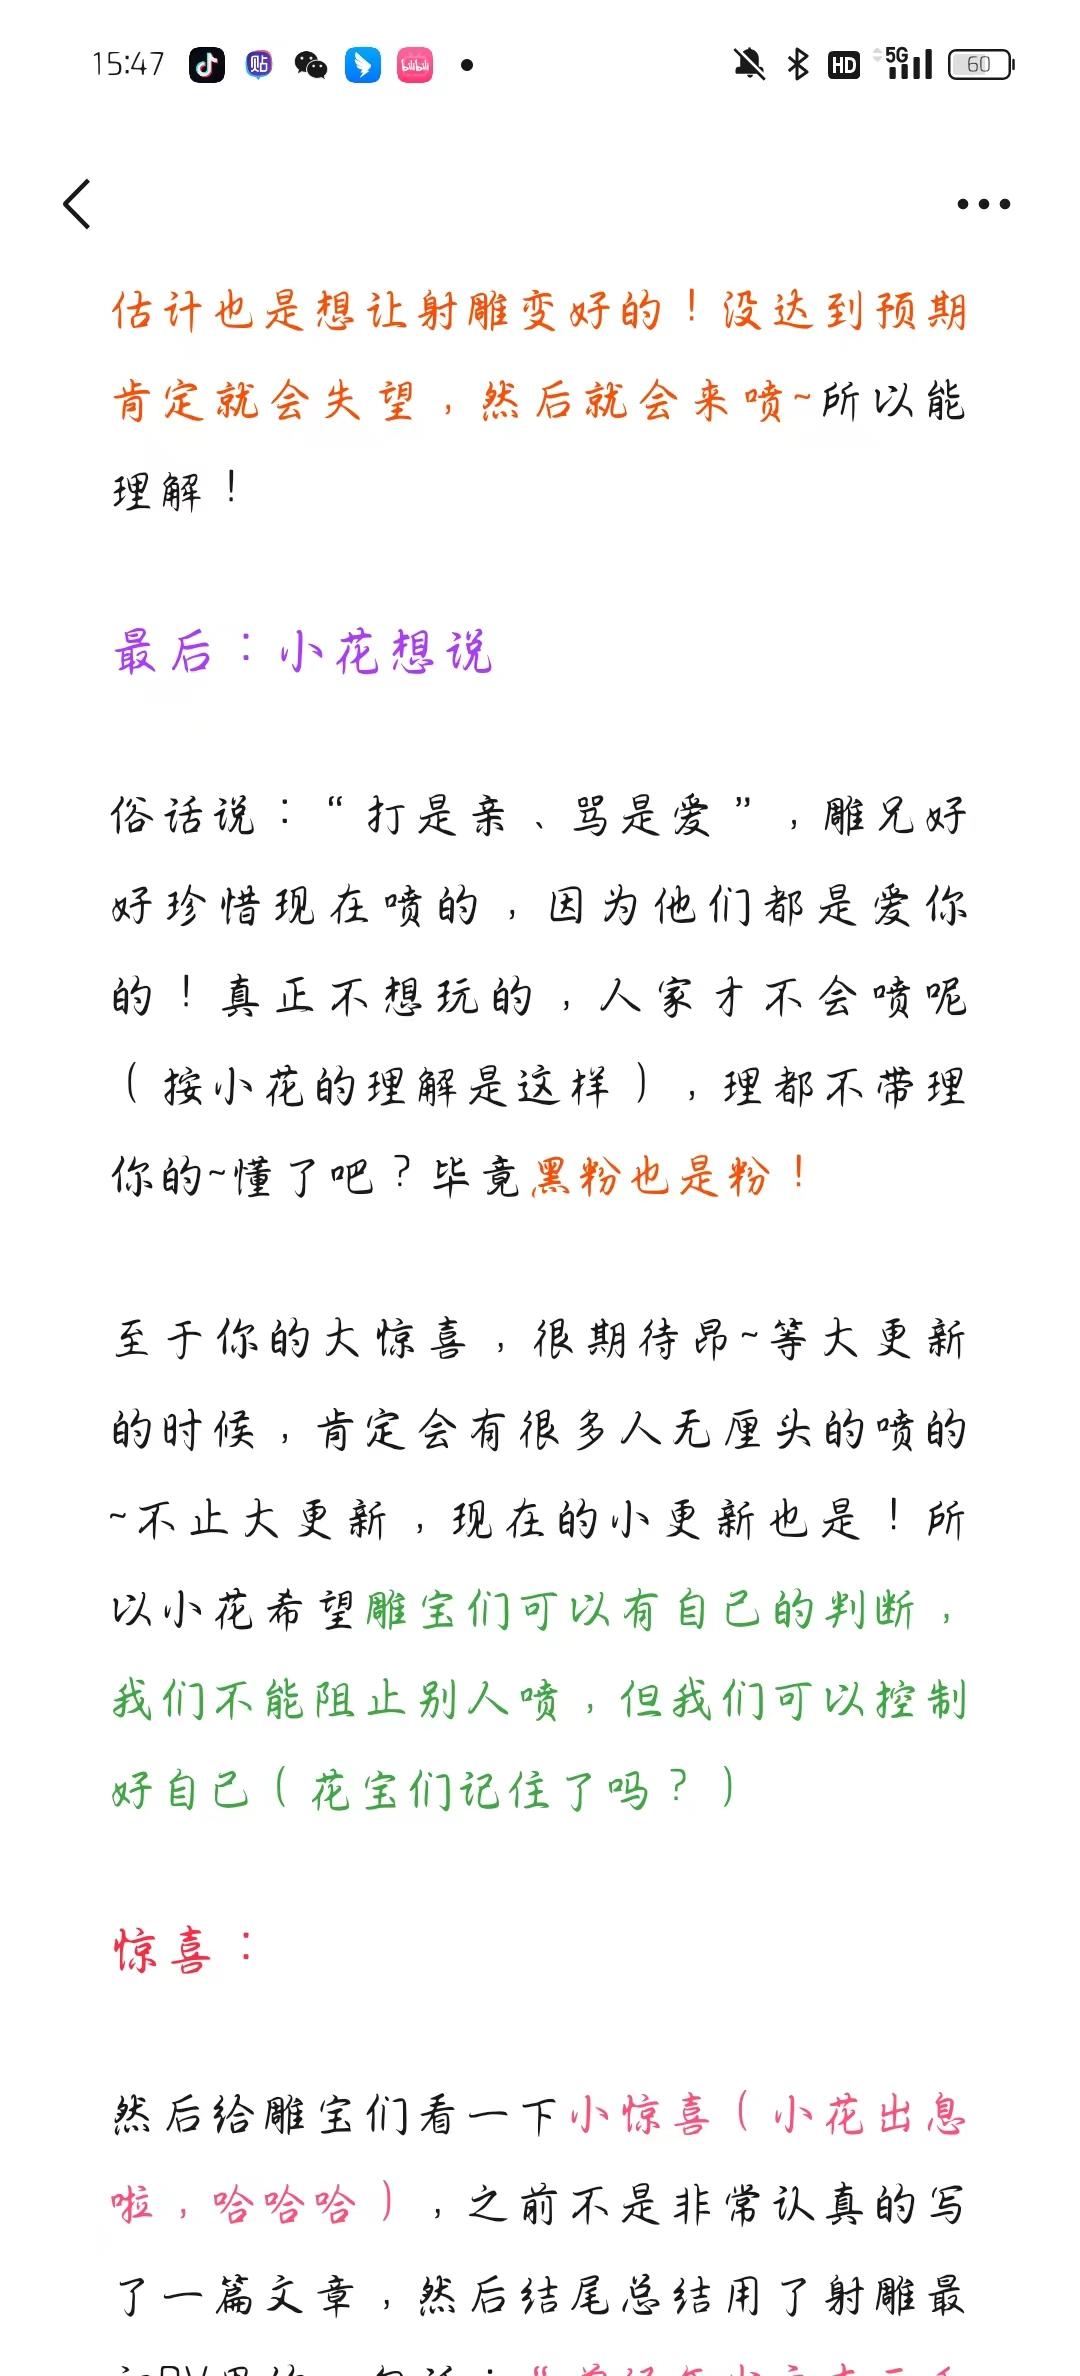 15:47
贴
bilibili
HD
5G
60
估计也是想让射雕变好的！没达到预期
肯定就会失望，然后就会来喷~所以能
理解！
最后：小花想说
俗话说：“打是亲、骂是爱”，雕兄好
好珍惜现在喷的，因为他们都是爱你
的！真正不想玩的，人家才不会喷呢
（按小花的理解是这样），理都不带理
你的~懂了吧？毕竟黑粉也是粉！
至于你的大惊喜，很期待昂~等大更新
的时候，肯定会有很多人无厘头的喷的
~不止大更新，现在的小更新也是！所
以小花希望雕宝们可以有自己的判断，
我们不能阻止别人喷，但我们可以控制
好自己（花宝们记住了吗？）
惊喜：
然后给雕宝们看一下小惊喜（小花出息
啦，哈哈哈），之前不是非常认真的写
了一篇文章，然后结尾总结用了射雕最